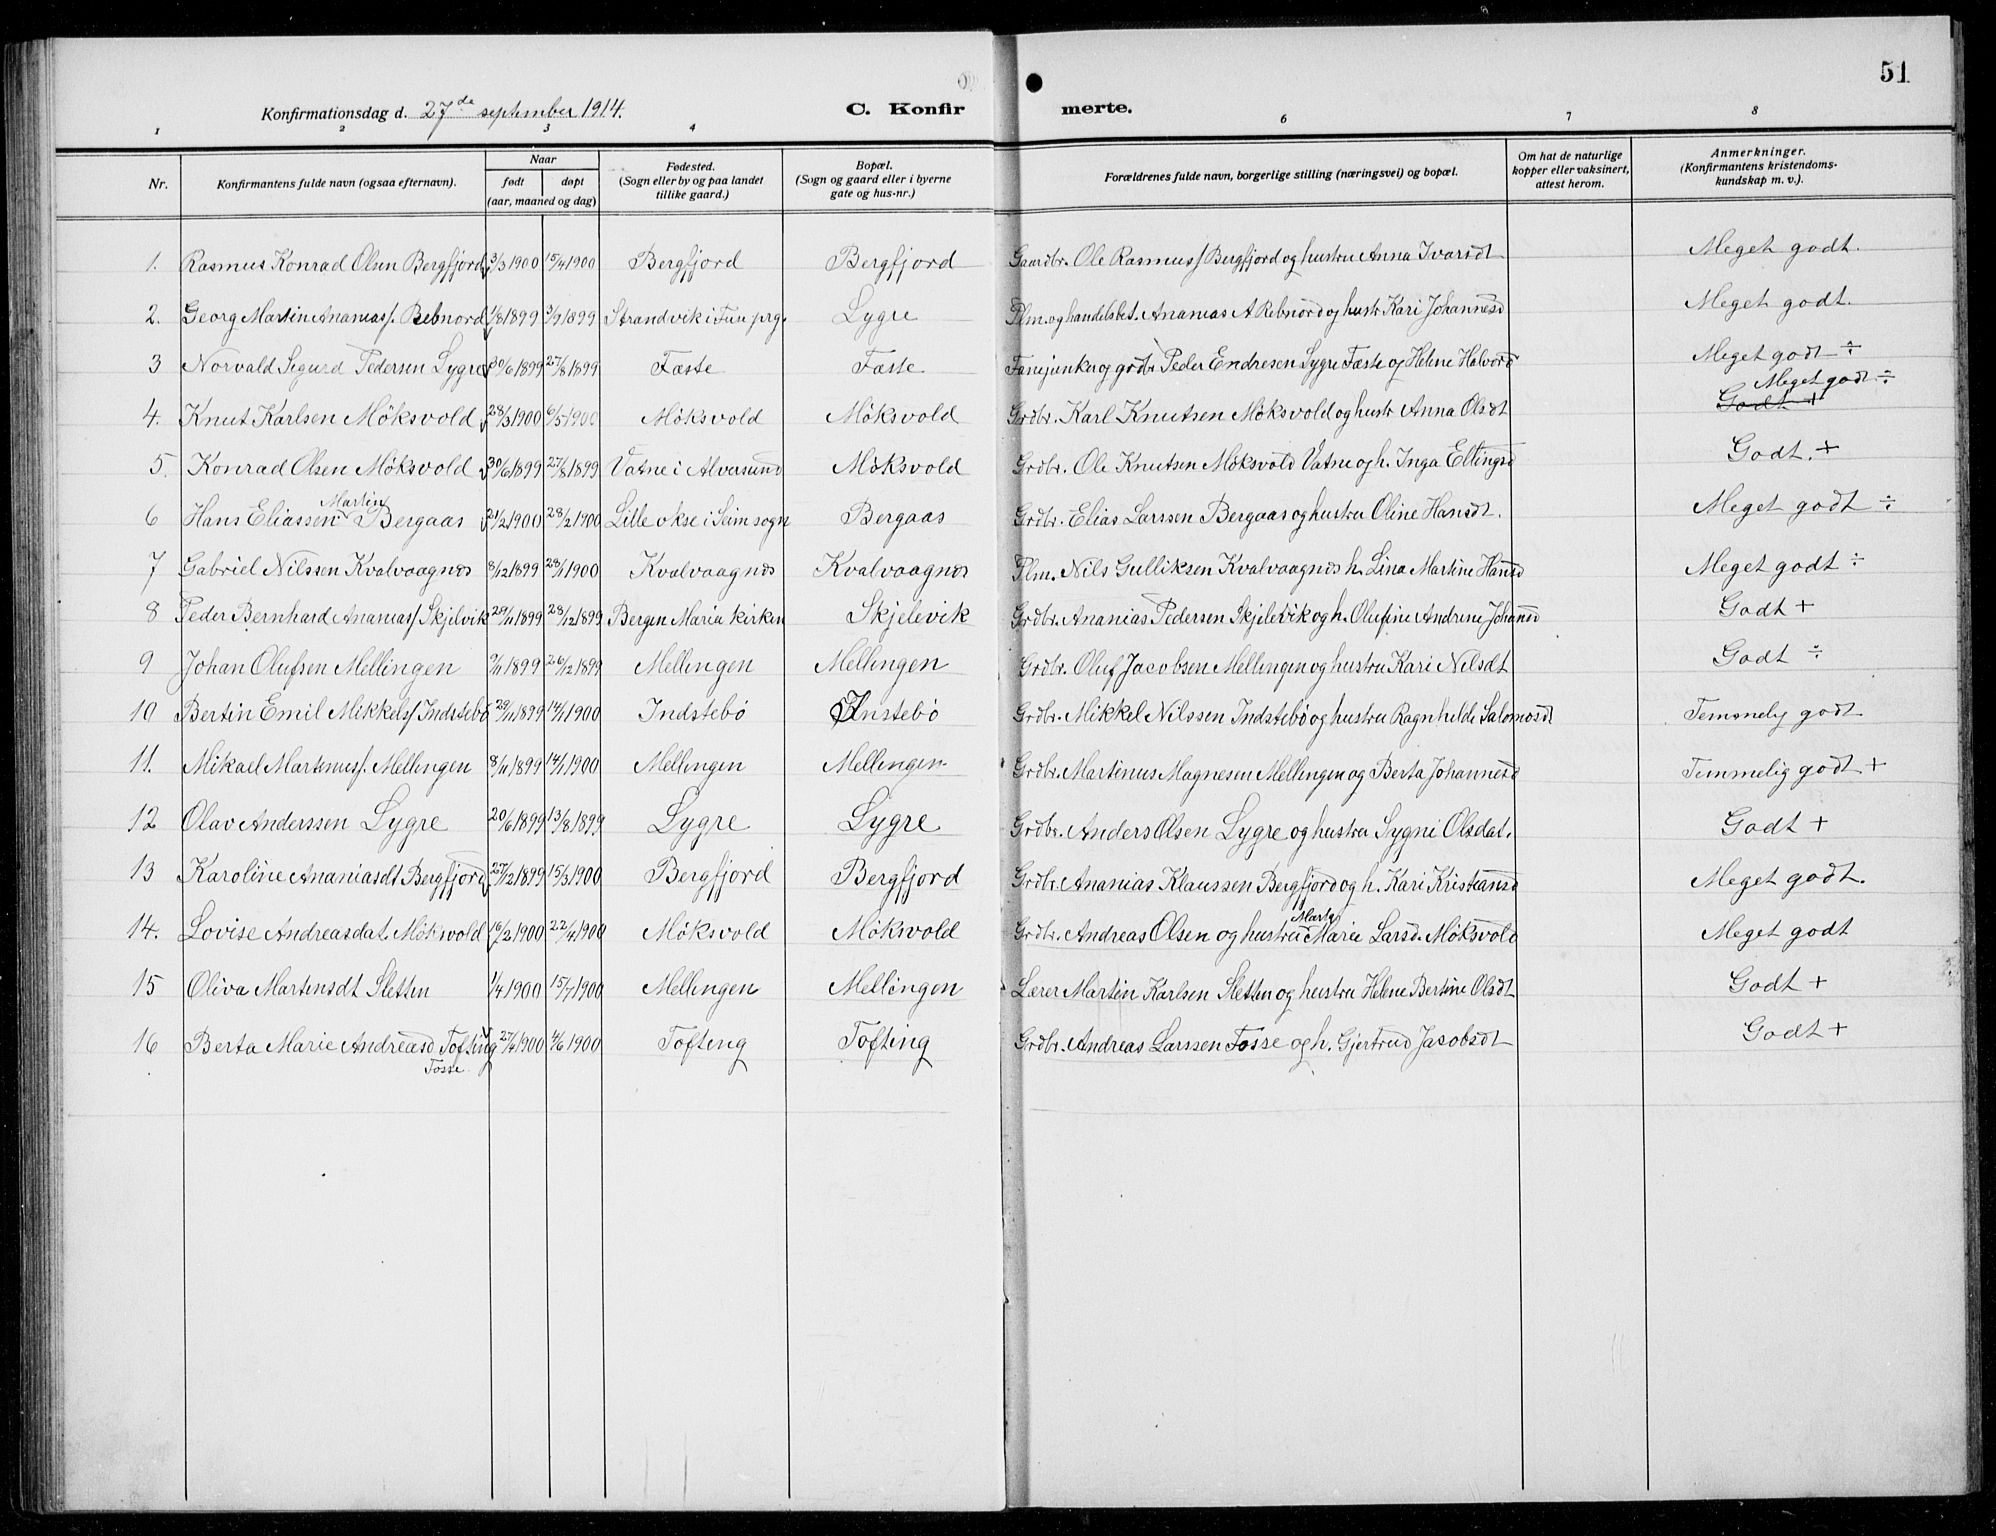 51
Konfirmationsdag d. 27de september 1914.
C. Konfirmerte.
1 2 3 4 6 7 8
Nr. Konfirmantens fulde navn (ogsaa efternavn). Naar født døpt (aar, maaned og dag) Fødested. (Sogn eller by og paa landet tillike gaard.) Bopæl. (Sogn og gaard eller i byerne gate og hus-nr.) Forældrenes fulde navn, borgerlige stilling (næringsvei) og bopæl. Om hat de naturlige kopper eller vaksinert, attest herom. Anmerkninger. (Konfirmantens kristendoms-kundskap m. v.).
1. Rasmus Konrad Olsen Bergfjord 3/3 1900 15/4 1900 Bergfjord Bergfjord Gaardbr. Ole Rasmuss/ Bergfjord og hustru Anna Ivarsdt Meget godt.
2. Georg Martin Ananiass/. Rebnord 1/8 1899 3/9 1899 Strandvik i Fun prg. Lygre Plm. og handelsbet. Ananias A Rebnord og hustr Kari Johannesd Meget godt.
3 Norvald Sigurd Pedersen Lygre 30/6 1899 27/8 1899 Fæste Fæste Fanejunker og grdbr Peder Endresen Lygre Fæste og Helene Halvord Meget godt ÷
4. Knut Karlsen Möksvold 28/3 1900 6/5 1900 Möksvold Möksvold Grdbr. Karl Knutsen Möksvold og hustr Anna Olsdt Meget godt ÷ Godt +
5. Konrad Olsen Möksvold 30/6 1899 27/8 1899 Vatne i Alversund Möksvold Grdbr. Ole Knutsen Möksvold Vatne og h. Inga Ellingsd Godt. +
6 Hans Eliassen Martin Bergaas 21/2 1900 28/2 1900 Lille okse i Seim sogn Bergaas Grdbr. Elias Larssen Bergaas og hustru Oline Hansdt. Meget godt ÷
7 Gabriel Nilssen Kvalvaagnes 8/12 1899 28/1 1900 Kvalvaagnes Kvalvaagnes Plm. Nils Gulliksen Kvalvaagnes h. Lina Martine Hansd Meget godt ÷
8 Peder Bernhard Ananiass/ Skjelvik 29/11 1899 28/12 1899 Bergen Maria kirken Skjelevik Grdbr. Ananias Pedersen Skjelevik og h. Olufine Andrine Johansd Godt +
9 Johan Olufsen Mellingen 9/11 1899 26/12 1899 Mellingen Mellingen Grdbr. Oluf Jacobsen Mellingen og hustru Kari Nilsdt Godt ÷
10 Bertin Emil Mikkels/ Indstebö 29/11 1899 14/1 1900 Indstebö Instebö Grdbr. Mikkel Nilssen Indstebö og hustru Ragnhilde Salomosdt Temmely godt
11. Mikael Martinuss/. Mellingen 8/11 1899 14/1 1900 Mellingen Mellingen Grdbr. Martinus Magnesen Mellingen og Berta Johannesd Temmelig godt +
12 Olav Anderssen Lygre 20/6 1899 13/8 1899 Lygre Lygre Grdbr. Anders Olsen Lygre og hustru Sygni Olsdat. Godt +
13 Karoline Ananiasdt Bergfjord 27/12 1899 15/3 1900 Bergfjord Bergfjord Grdbr. Ananias Klaussen Bergfjord og h. Kari Kristiansd Meget godt.
14. Lovise Andreasdat. Möksvold 16/2 1900 22/4 1900 Möksvold Möksvold Grdbr. Andreas Olsen og hustru Marta Marie Larsd. Möksvold Meget godt
15 Oliva Martensdt Sletten 1/4 1900 15/7 1900 Mellingen Mellingen Lærer Martin Karlsen Sletten og hustru Helene Bertine Olsdt Godt +
16 Berta Marie Andreasd Tofting Fosse 27/4 1900 4/6 1900 Tofting Tofting Grdbr. Andreas Larssen Fosse og h. Gjertrud Jacobsdt Godt +